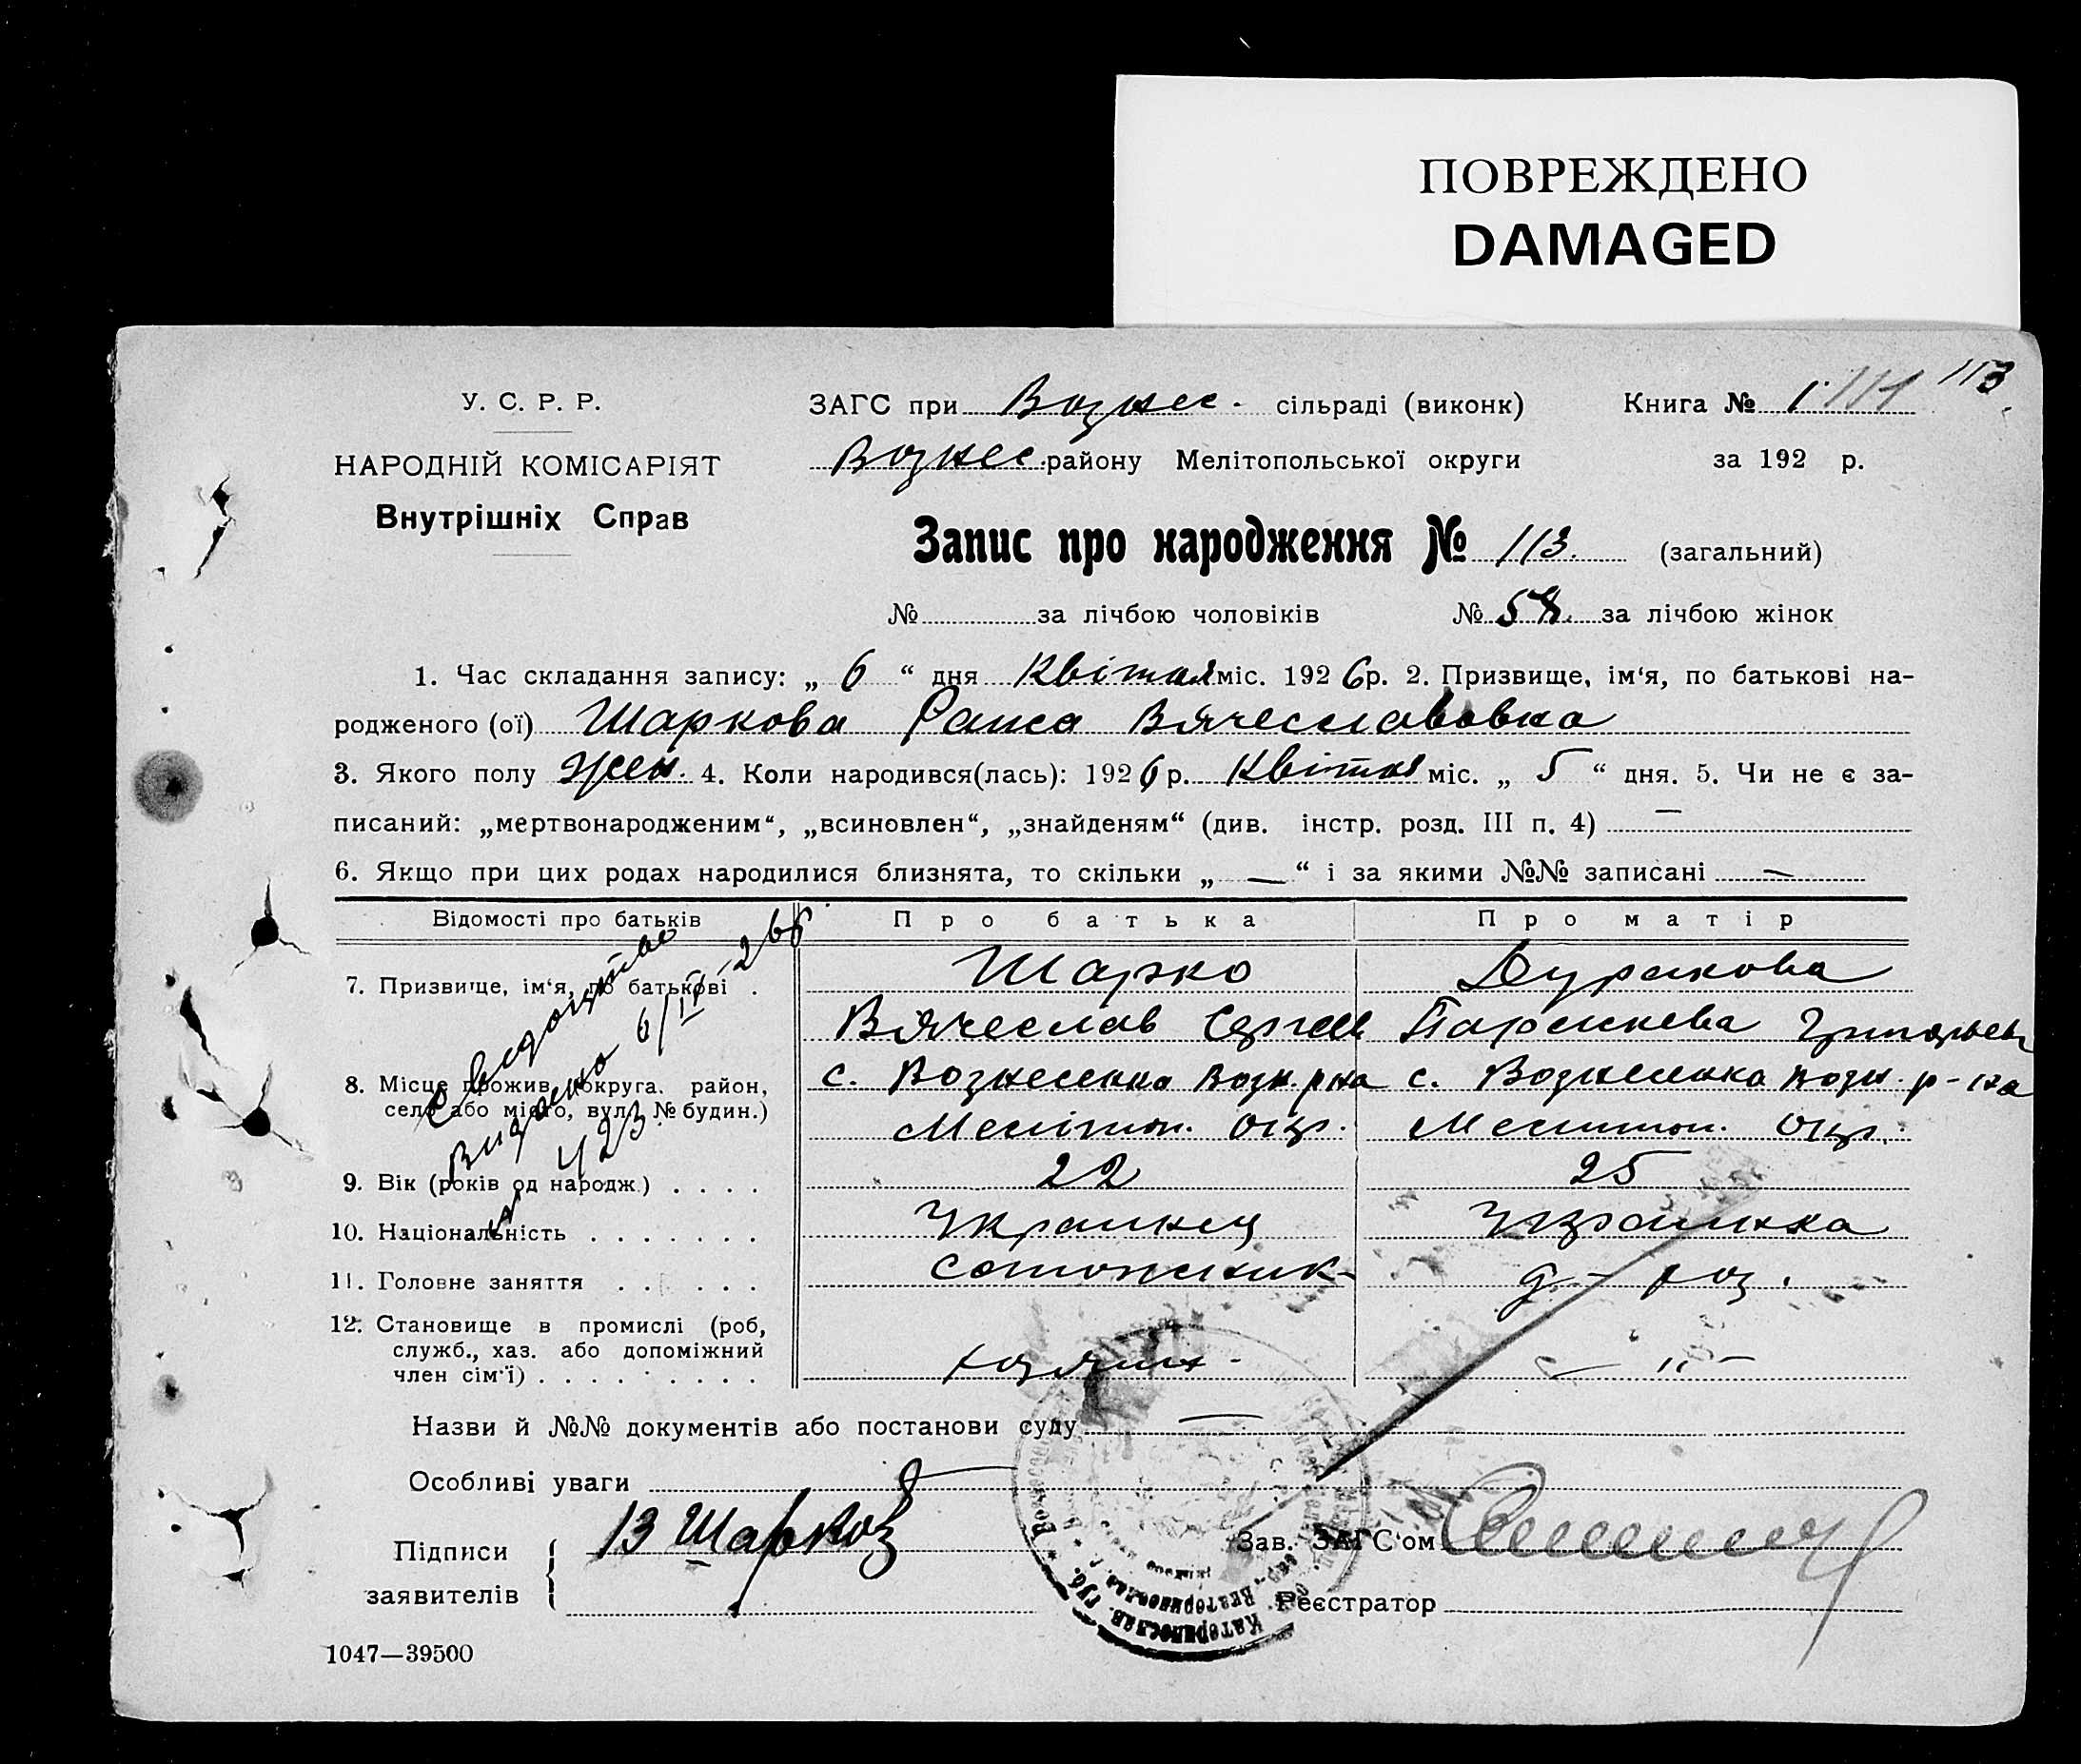 ПОВРЕЖДЕНО
DAMAGED
113
У. С. Р. Р.
НАРОДНІЙ КОМІСАРІЯТ
Внутрішніх Справ
ЗАГС при Вознес. сільраді (виконк)
Книга № 1
Вознес. району Мелітопольської округи
за 192 р.
Запис про народження № 113. (загальний)
№ за лічбою чоловіків № 58. за лічбою жінок
1. Час складання запису: „ 6 “ дня Квітня міс. 1926р. 2. Призвище, ім'я, по батькові на-
родженого (ої) Шаркова Раиса Вячеславовна
3. Якого полу жен. 4. Коли народився(лась): 1926 р. Квітня міс. „ 5 “ дня. 5. Чи не є за-
писаний: „мертвонародженим“, „всиновлен“, „знайденям“ (див. інстр. розд. III п. 4) —
6. Якщо при цих родах народилися близнята, то скільки „ — “ і за якими №№ записані —
Відомості про батьків Про батька Про матір
7. Призвище, ім'я, по батькові . Шарко Дуракова
Вячеслав Сергеев Параскева Григорьев
8. Місце прожив. (округа. район, с. Вознесенка Возн. р-на с. Вознесенка Возн. р-на
село або місто, вул. № будин.) Мелітоп. Окр. Мелитоп. Окр.
9. Вік (років од народж.) . . . . 22 25
10. Національність . . . . . . . Украинец Украинка
11. Головне заняття . . . . . .
12. Становище в промислі (роб,
служб., хаз. або допоміжний хозяин - — „ —
член сім'ї) . . . . . . . . .
Видано 6/IV-26
№ 423
Назви й №№ документів або постанови суду —
Особливі уваги
Підписи
заявителів
В Шарков
Зав. ЗАГС'ом
Реєстратор
Катеринослав. губ.
1047—39500